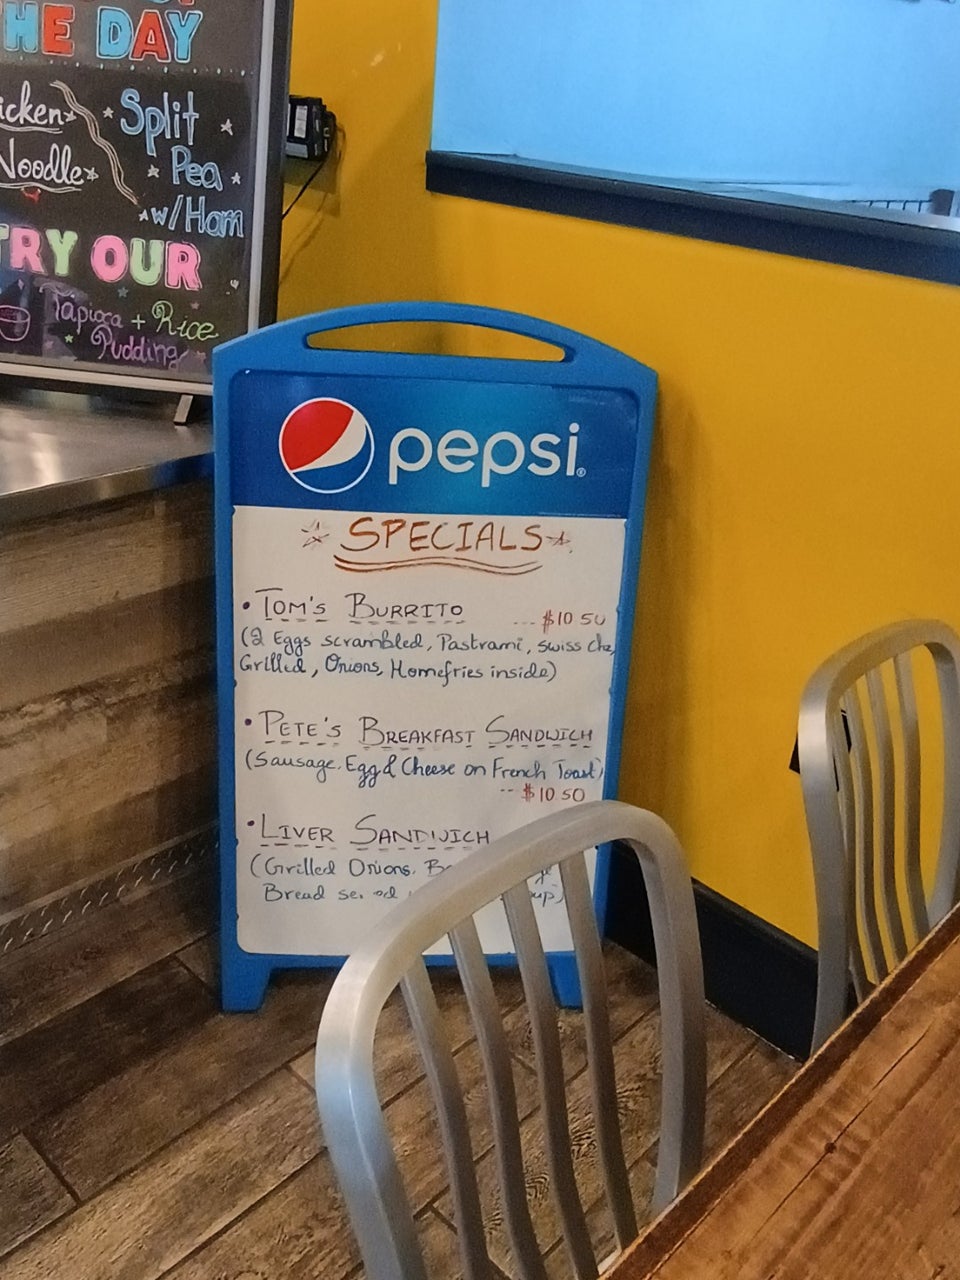 HE DAY
Noodle
Split
Pea
w/Ham
TRY OUR
Tapioca + Rice
Pudding
pepsi
SPECIALS
• TOM'S BURRITO
--- $10.50
(2 Eggs scrambled, Pastrami, swiss
Grilled, Onions, Homefries inside)
• PETE'S BREAKFAST SANDWICH
(Sausage, Egg & Cheese on French Toast)
-- $10.50
• LIVER SANDWICH
(Grilled Onions,
Bread